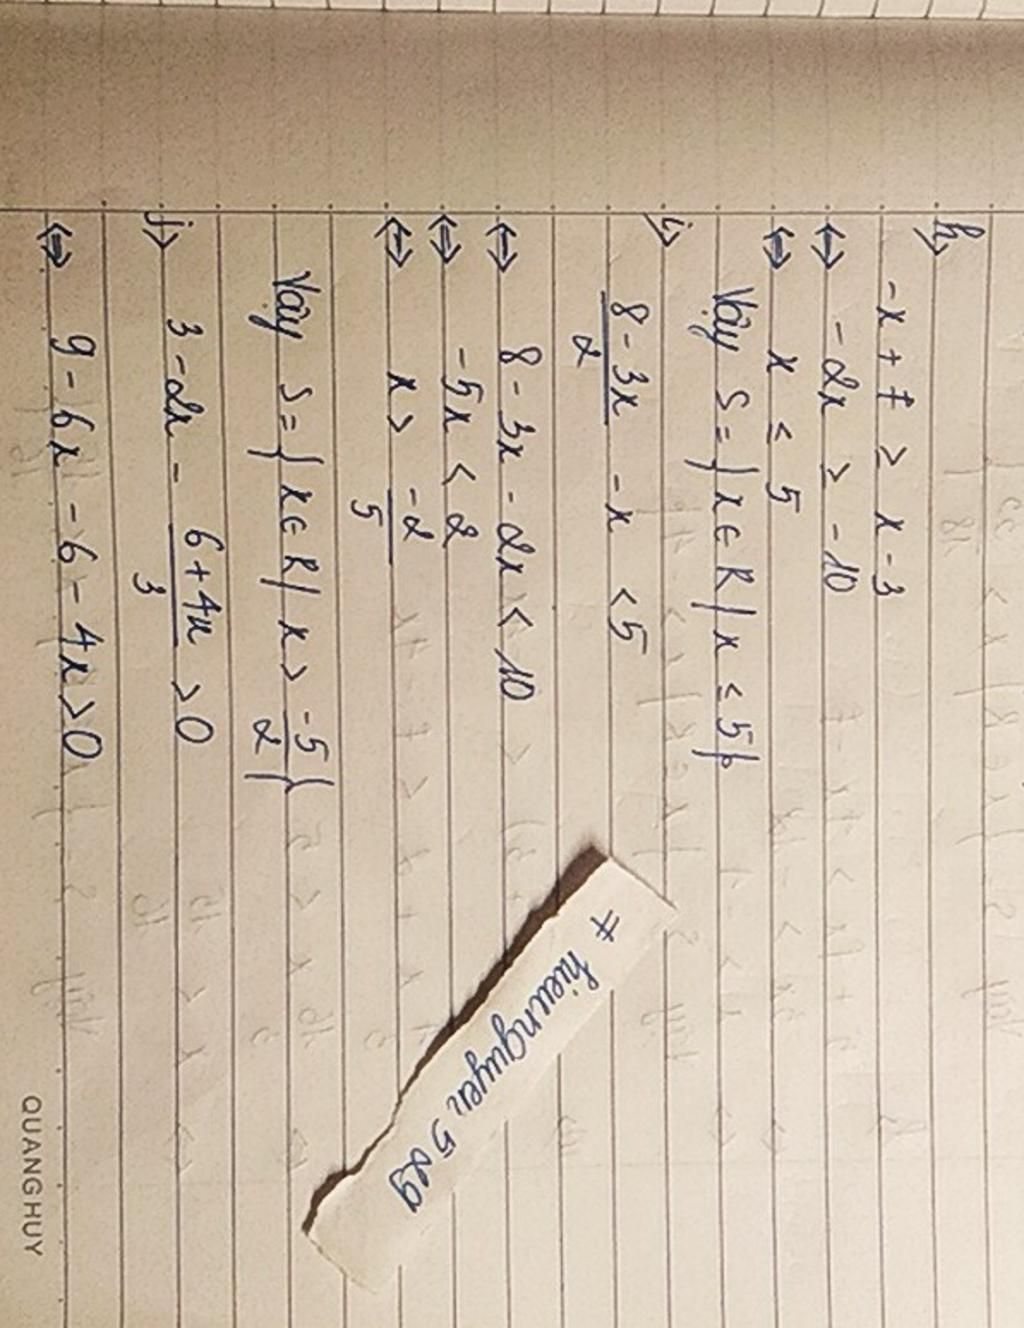 h>
-x + 7 ≥ x - 3
⇔ -2x ≥ -10
⇔ x ≤ 5
Vậy S = { x ∈ R / x ≤ 5 }
i> (8 - 3x)/2 - x < 5
⇔ 8 - 3x - 2x < 10
⇔ -5x < 2
⇔ x > -2/5
Vậy S = { x ∈ R / x > -5/2 }
j> 3 - 2x - (6 + 4x)/3 > 0
⇔ 9 - 6x - 6 - 4x > 0
# hieunguyen 5 2g
QUANG HUY